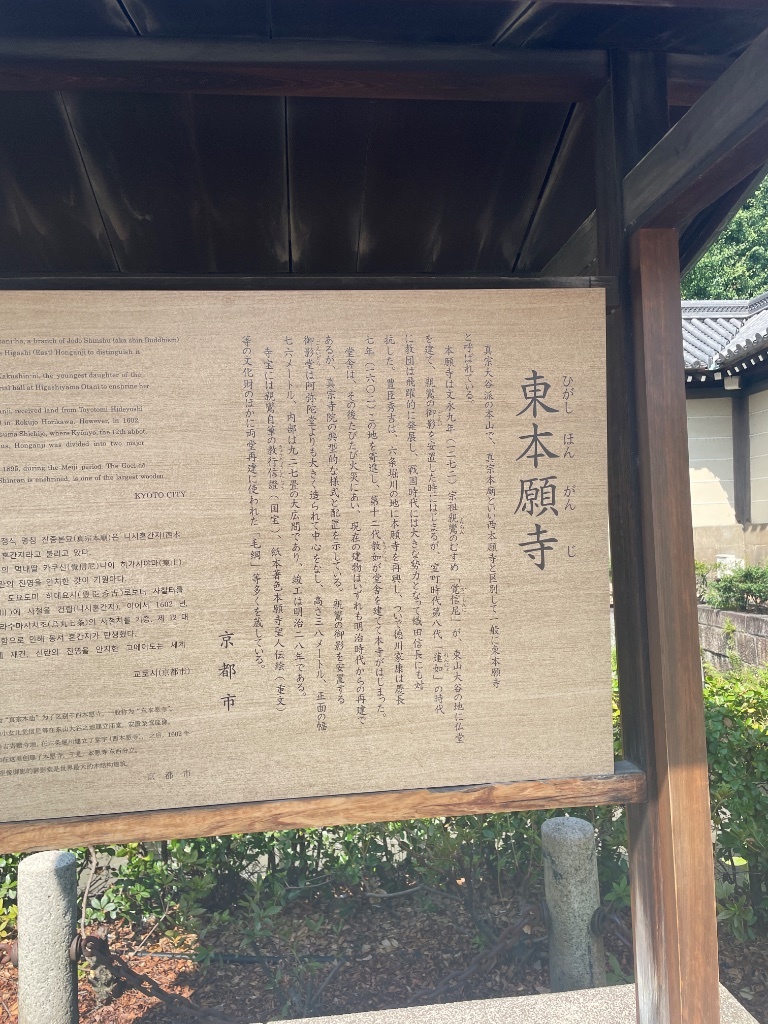 東本願寺
ひがし ほん がん じ
真宗大谷派の本山で、真宗本廟といい西本願寺と区別して一般に東本願寺
と呼ばれている。
本願寺は文永九年(一二七二)宗祖親鸞のむすめ「覚信尼」が、東山大谷の地に仏堂
を建て、親鸞の御影を安置した時にはじまるが、室町時代第八代「蓮如」の時代
に教団は飛躍的に発展し、戦国時代には大きな勢力となって織田信長にも対
抗した。豊臣秀吉は、六条堀川の地に本願寺を再興し、ついで徳川家康は慶長
七年(一六〇二)この地を寄進し、第十二代教如が堂舎を建てて本寺がはじまった。
堂舎は、その後たびたび火災にあい、現在の建物はいずれも明治時代からの再建で
あるが、真宗寺院の典型的な様式と配置を示している。親鸞の御影を安置する
御影堂は阿弥陀堂よりも大きく造られて中心をなし、高さ三八メートル、正面の幅
七六メートル、内部は九二七畳の大広間であり、竣工は明治二八年である。
寺宝には親鸞自筆の教行信證(国宝)、紙本著色本願寺聖人伝絵(重文)
等の文化財のほかに両堂再建に使われた「毛綱」等多くを蔵している。
京都市
a branch of Jodo Shinshu (aka shin Buddhism)
Higashi (East) Honganji to distinguish it
the youngest daughter of the
hall at Higashiyama Otani to enshrine her
received land from Toyotomi Hideyoshi
in Rokujo Horikawa. However, in 1602,
where Kyonyo, the 12th abbot,
Honganji was divided into two major
1895, during the Meiji period. The Goei-do
Shinran is enshrined, is one of the largest wooden
KYOTO CITY
정식 명칭 진종본묘(真宗本廟)은 니시혼간지(西本
혼간지라고 불리고 있다.
의 막내딸 카쿠신니(覚信尼)니이 히가시야마(東山)
란의 진영을 안치한 것이 기원이다.
도요토미 히데요시(豊臣秀吉)로부터 사찰터를
에 사찰을 건립(니시혼간지), 이어서, 1602 년
의 사찰지를 기증, 제 12 대
함으로 인해 동서 혼간지가 탄생했다.
재건, 신란의 진영을 안치한 고에이도는 세계
교토시(京都市)
京都市